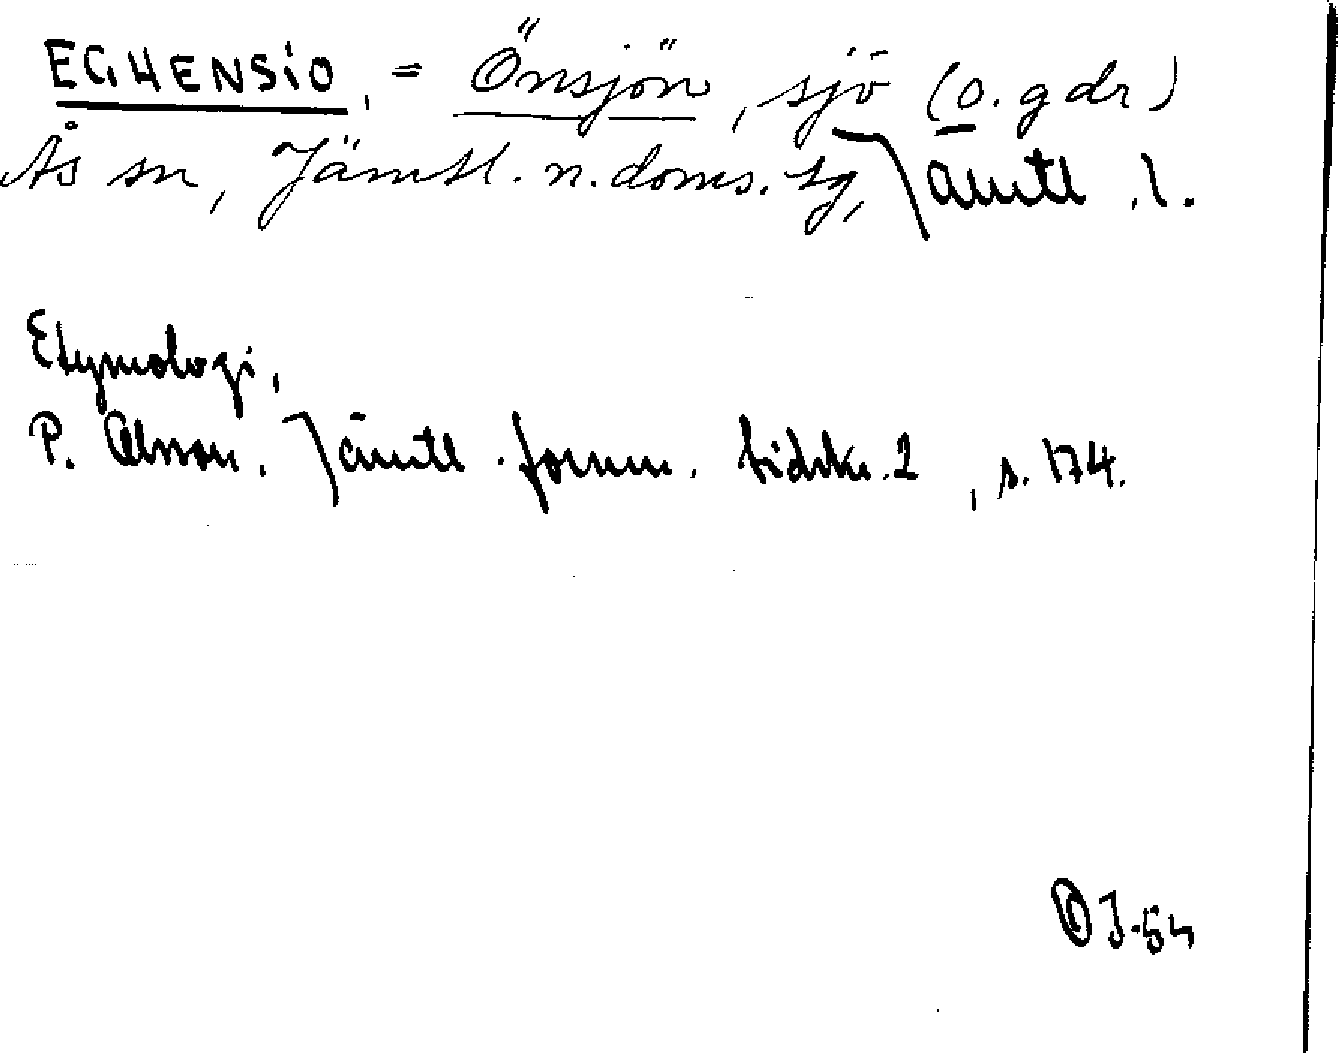 EGHENSIO, = Önsjön, sjö (o. gdr)
Ås sn, Jämtl. n. doms. tg, Jämtl. l.
Etymologi,
P. Olsson. Jämtl. fornm. tidskr. 2, s. 174.
OJ-54